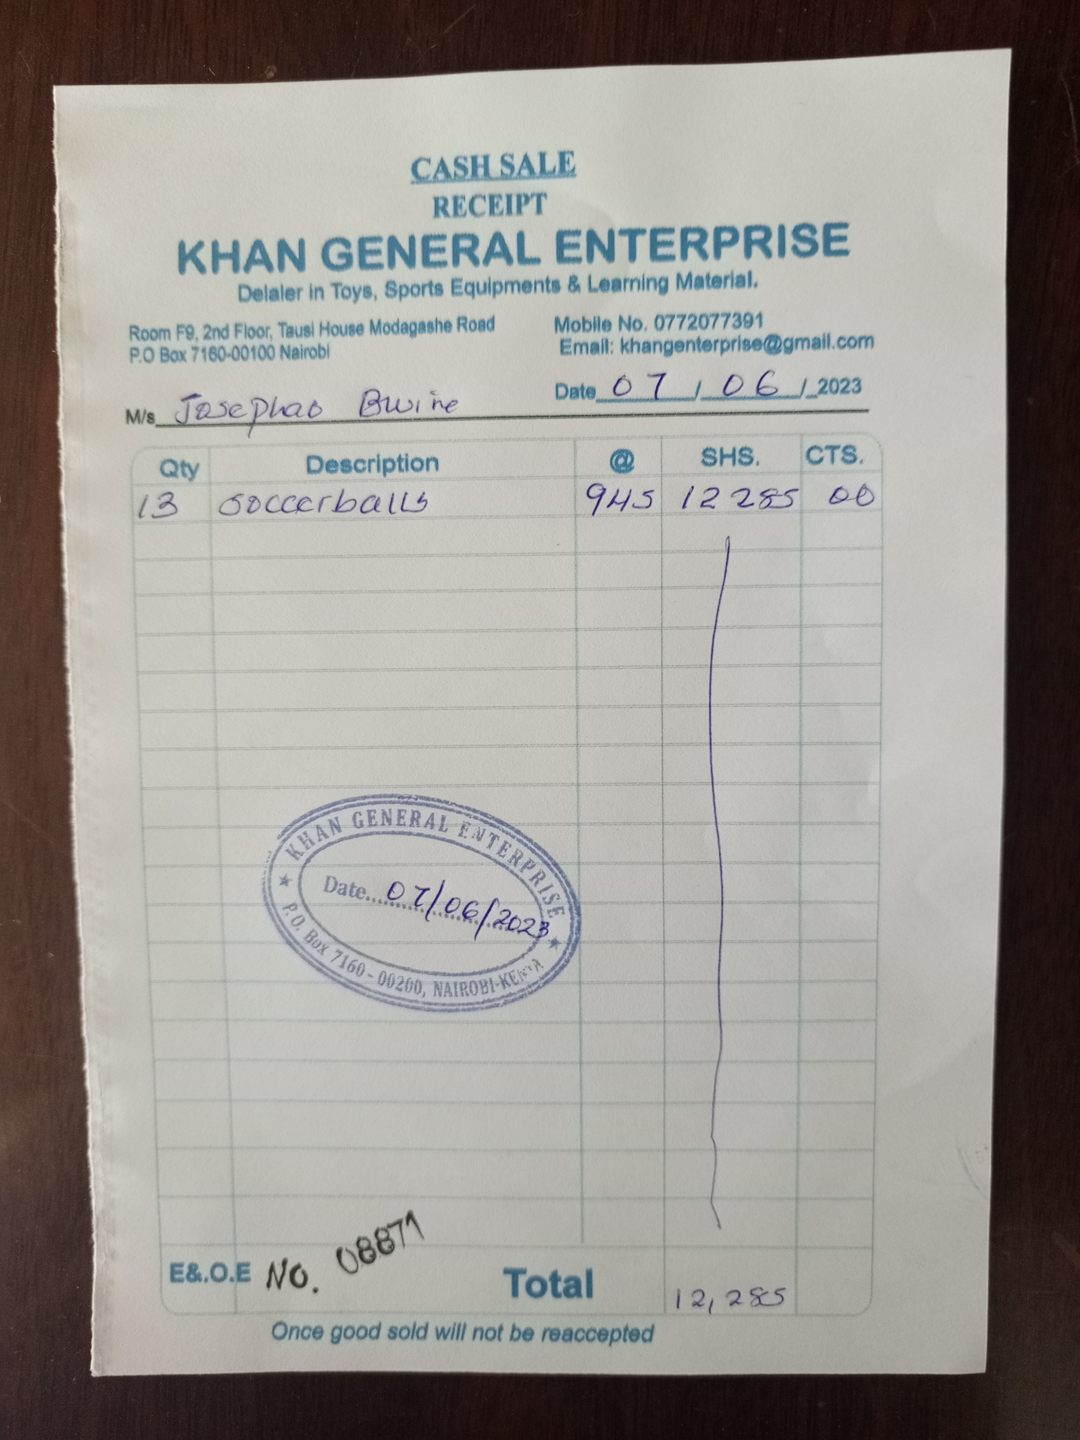 CASH SALE
RECEIPT
KHAN GENERAL ENTERPRISE
Delaler in Toys, Sports Equipments & Learning Material.
Room F9, 2nd Floor, Tausi House Modagashe Road
P.O Box 7160-00100 Nairobi
Mobile No. 0772077391
Email: khangenterprise@gmail.com
Date 07 / 06 / 2023
M/s Josephao Bwire
Qty Description @ SHS. CTS.
13 soccerballs 945 12 285 00
KHAN GENERAL ENTERPRISE
Date....07/06/2023
P.O. Box 7160 - 00200, NAIROBI-KENYA
E&.O.E No. 08871
Total 12,285
Once good sold will not be reaccepted